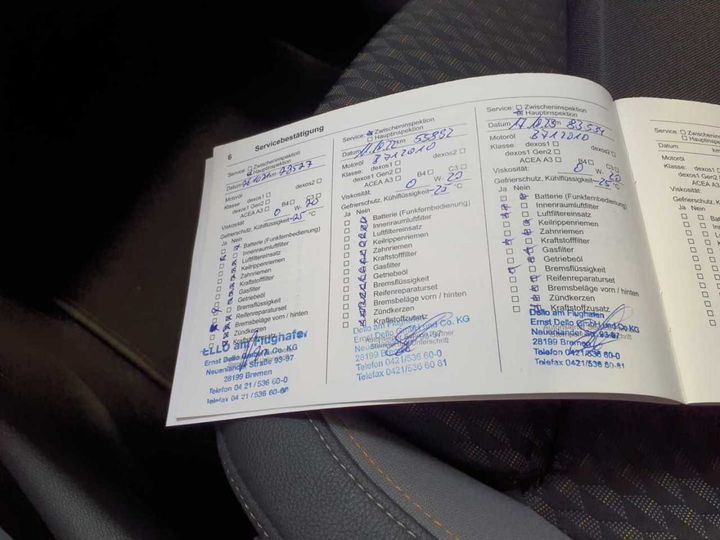 6 Servicebestätigung
Service: □ Zwischeninspektion
□ Hauptinspektion
Datum km 29527
Motoröl
Klasse: dexos1 □ dexos2 □
dexos1 Gen2 □
ACEA A3 □ B4 □ C3 □
Viskosität: 0 W- 20
Gefrierschutz, Kühlflüssigkeit -25 °C
Ja Nein
Batterie (Funkfernbedienung)
Innenraumluftfilter
Luftfiltereinsatz
Keilrippenriemen
Zahnriemen
Kraftstofffilter
Gasfilter
Getriebeöl
Bremsflüssigkeit
Reifenreparaturset
Bremsbeläge vorn / hinten
Zündkerzen
Kraftstoffzusatz
ELLO am Flughafen
Ernst Dello GmbH & Co. KG
Neuenlander Straße 93-97
28199 Bremen
Telefon 04 21 / 536 60-0
Telefax 04 21 / 536 60-86
Service: Zwischeninspektion
□ Hauptinspektion
Datum 11.10.22 km 55892
Motoröl B712010
Klasse: dexos1 □ dexos2 □
dexos1 Gen2 □
ACEA A3 □ B4 □ C3 □
Viskosität: 0 W- 20
Gefrierschutz, Kühlflüssigkeit -25 °C
Ja Nein
Batterie (Funkfernbedienung)
Innenraumluftfilter
Luftfiltereinsatz
Keilrippenriemen
Zahnriemen
Kraftstofffilter
Gasfilter
Getriebeöl
Bremsflüssigkeit
Reifenreparaturset
Bremsbeläge vorn / hinten
Zündkerzen
Kraftstoffzusatz
Dello am Flughafen
Ernst Dello GmbH und Co. KG
28199 Bremen
Telefon 0421/536 60-0
Telefax 0421/536 60 81
Service: □ Zwischeninspektion
Hauptinspektion
Datum 17.10.23 km 83551
Motoröl B712010
Klasse: dexos1 □ dexos2 □
dexos1 Gen2 □
ACEA A3 □ B4 □ C3 □
Viskosität: 0 W- 20
Gefrierschutz, Kühlflüssigkeit -25 °C
Ja Nein
Batterie (Funkfernbedienung)
Innenraumluftfilter
Luftfiltereinsatz
Keilrippenriemen
Zahnriemen
Kraftstofffilter
Gasfilter
Getriebeöl
Bremsflüssigkeit
Reifenreparaturset
Bremsbeläge vorn / hinten
Zündkerzen
Kraftstoffzusatz
Dello am Flughafen
Ernst Dello GmbH und Co.KG
Neuenlander Str. 93-97
28199 Bremen
Telefon 0421/536 60-0
Telefax 0421/536 60-81
Service: □
Datum
Motoröl
Klasse:
Viskosität:
Gefrierschutz
Ja Nein